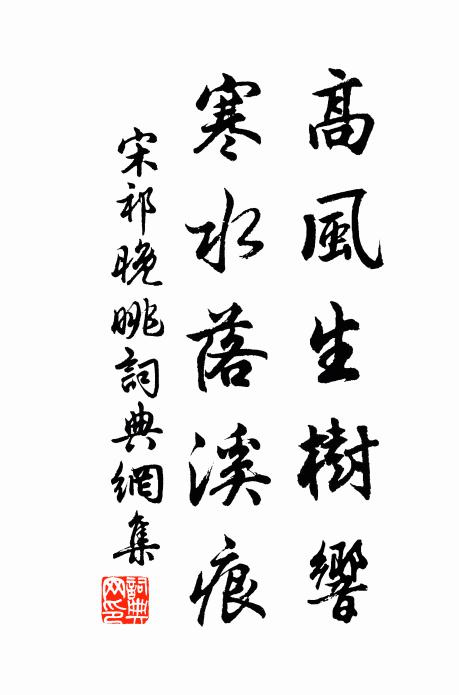 高風生樹響
寒水落溪痕
宋祁晚眺詞典網集
詞典網印